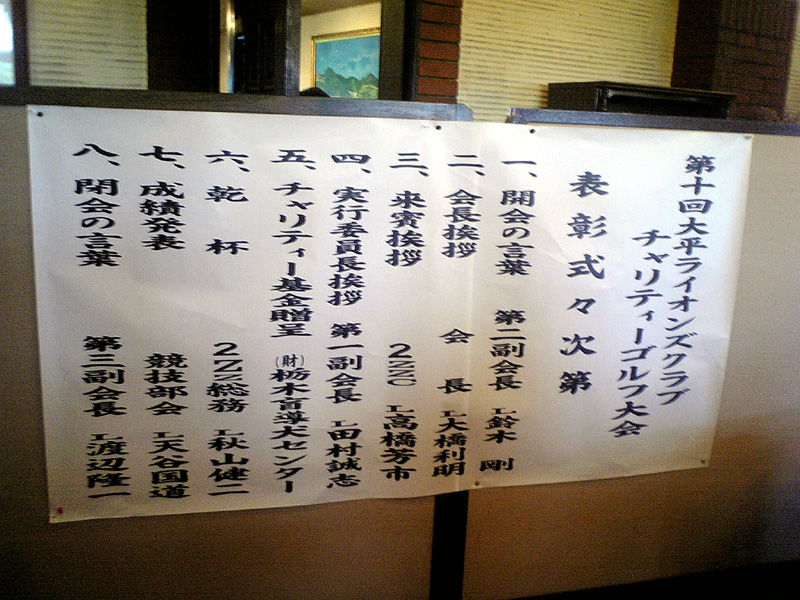 第十回大平ライオンズクラブ
チャリティーゴルフ大会
表彰式々次第
一、開会の言葉 第二副会長 L鈴木 剛
二、会長挨拶 会長 L大橋利明
三、来賓挨拶 2ZZC L高橋芳市
四、実行委員長挨拶 第一副会長 L田村誠志
五、チャリティー基金贈呈 (財)栃木盲導犬センター
六、乾杯 2Z総務 L秋山健二
七、成績発表 競技部会 L天谷国道
八、閉会の言葉 第三副会長 L渡辺隆一